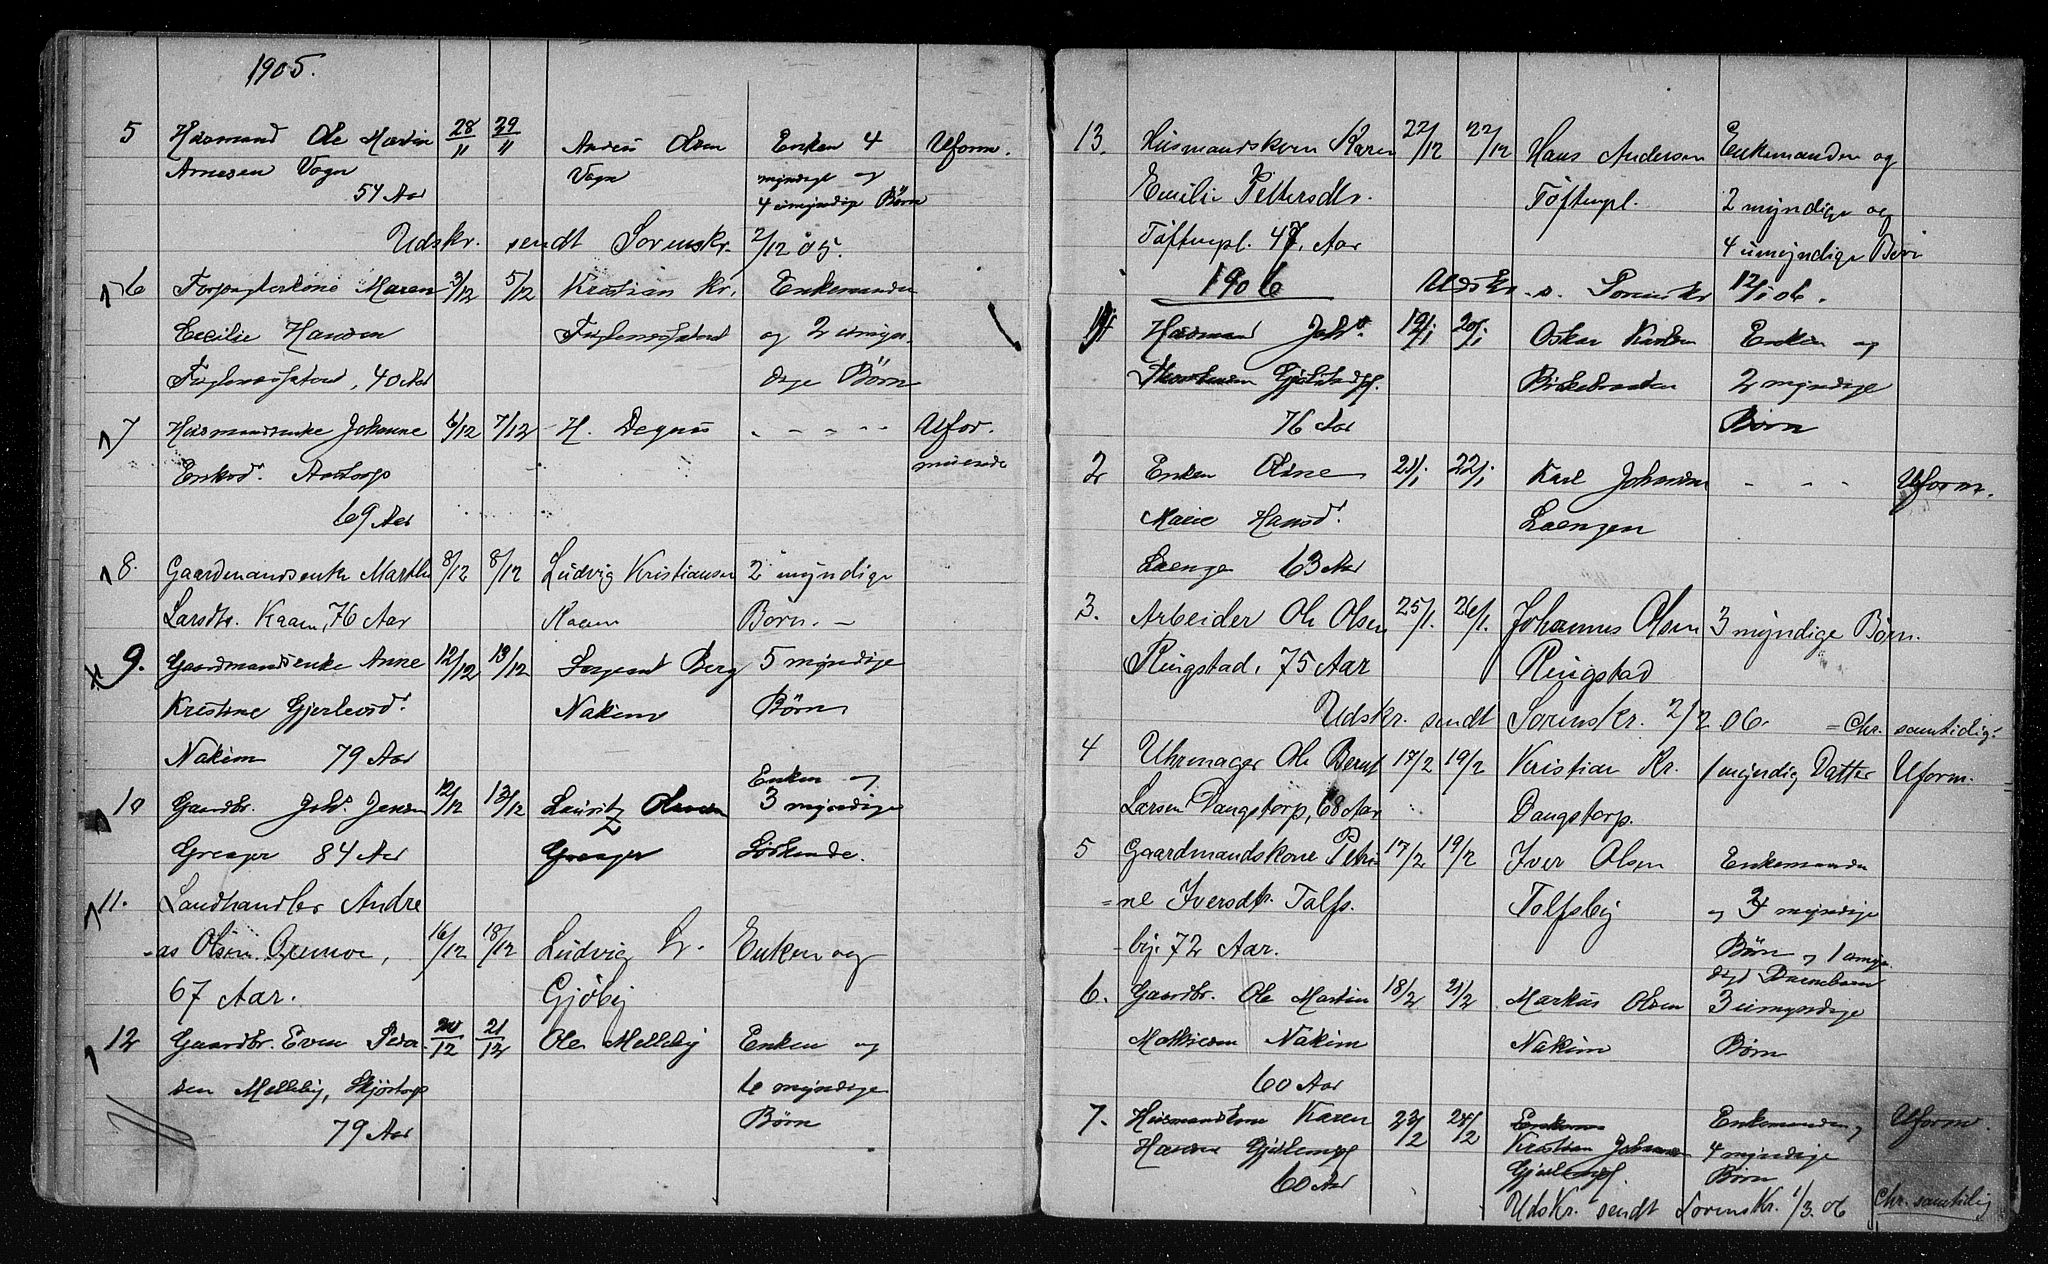 1905.
5 Husmand Ole Martin 28/11 29/11 Anders Olsen Enken 4 Uform.
Arnesen Vogn Vogn myndige og
54 Aar 4 umyndige Børn
Udskr. sendt Sorenskr. 2/12 05.
6 Forpagterkone Maren 3/12 5/12 Kristian Kr. Enkemanden
Cecilie Hansen og 2 umyn-
40 Aar dige Børn
7 Husmandsenke Johanne 6/12 7/12 H. Degnes - - - - - Ufor-
Aastorp muende
69 Aar
8. Gaardmandsenke Marthe 8/12 8/12 Ludvig Kristiansen 2 myndige
Larsdtr. Kaam, 76 Aar Kaam Børn. -
9. Gaardmandsenke Anne 12/12 13/12 Sergeant Berg 5 myndige
Kristine Gjerlovsd. Nakim Børn
Nakim 79 Aar
10 Gaardbr. Johs. Jensen 12/12 13/12 Lauritz Olsen Enken og 3 myndige
Greager 84 Aar Greager Søskende.
11. Landhandler Andre
as Olsen Grimoe, 16/12 18/12 Ludvig L. Enken og
67 Aar. Gjøby
12 Gaardbr. Even Peder- 20/12 21/12 Ole Melleby Enken og
sen Melleby, Skjørtorp 6 myndige
79 Aar Børn
13. Husmandskone Karen 22/12 22/12 Hans Andersen Enkemanden og
Emilie Pettersdtr. Toftenpl. 2 myndige og
Toftenpl. 47 Aar 4 umyndige Børn
1906 Udskr. s. Sorenskr 12/1 06.
1 Husmand Johs. 19/1 20/1 Oskar Enken og
2 myndige
76 Aar Børn
2 Enken Oline 21/1 22/1 Karl Johansen - - - Uform.
Marie Hansd. Laengen
Laenge 63 Aar
3. Arbeider Ole Olsen 25/1. 26/1. Johannes Olsen 3 myndige Børn.
Ringstad, 75 Aar Ringstad
Udskr. sendt Sorenskr. 2/2 06. = Chr. samtidig.
4 Uhrmager Ole Bernt 17/2 19/2 Kristian Kr. 1 myndig Datter Uform.
Larsen Dangstorp, 68 Aar Dangstorp.
5 Gaardmandskone Petri 17/2 19/2 Iver Olsen Enkemanden
=ne Iversdtr. Talfs. Tolfsby og myndige
by. 72 Aar. Børn og 1
6. Gaardbr. Ole Martin 18/2 21/2 Markus Olsen 3 umyndige
Mathiesen Nakim Nakim Børn
60 Aar
7. Husmandskone Karen 23/2 24/2 Enkemanden, Uform.
Hansen Kristian Johansen 4 myndige
60 Aar Børn
Udskr. sendt Sorenskr. 1/3. 06 Chr. samtidig